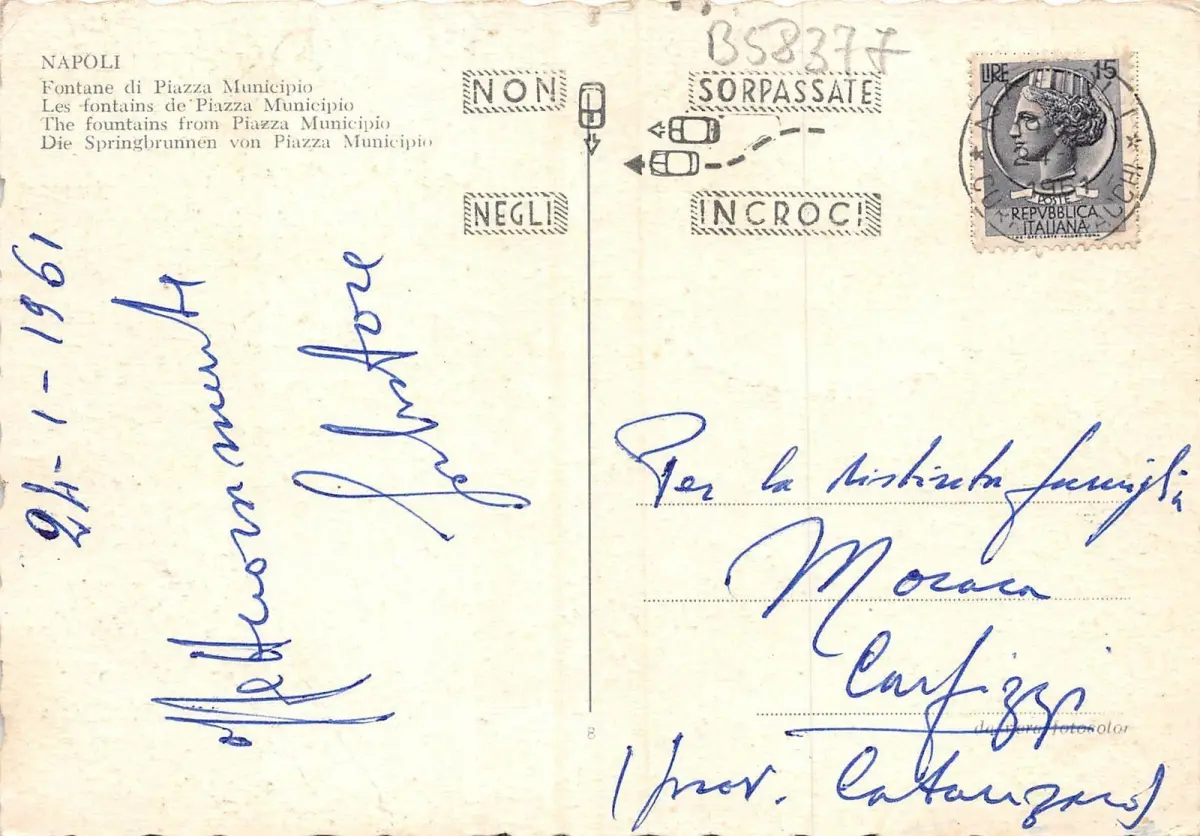 B58377
NAPOLI
Fontane di Piazza Municipio
Les fontains de Piazza Municipio
The fountains from Piazza Municipio
Die Springbrunnen von Piazza Municipio
NON SORPASSATE
NEGLI INCROCI
LIRE 15
POSTE
REPVBBLICA
ITALIANA
24-1
1961
24-1-1961
Affettuosamente
Salvatore
Per la distinta famiglia
Moraca
Carfizzi
(prov. Catanzaro)
da vera fotocolor
8